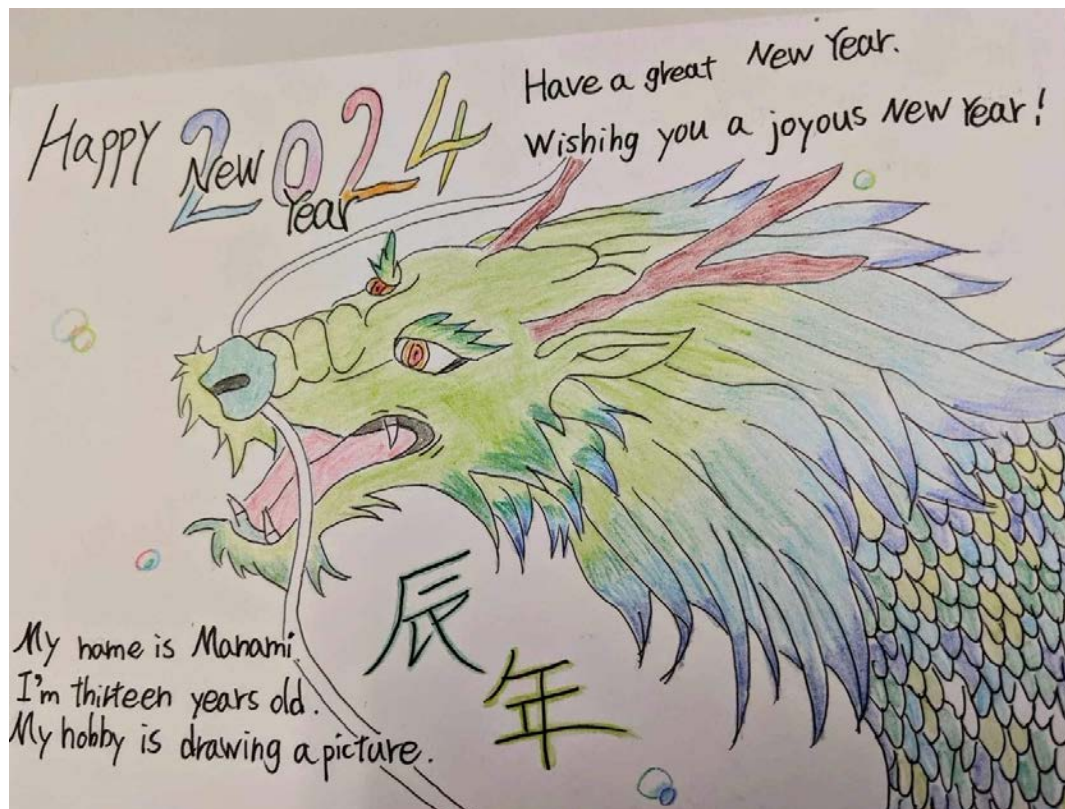 Happy New Year
2024
Have a great New Year.
Wishing you a joyous New Year!
辰年
My name is Manami
I'm thirteen years old.
My hobby is drawing a picture.